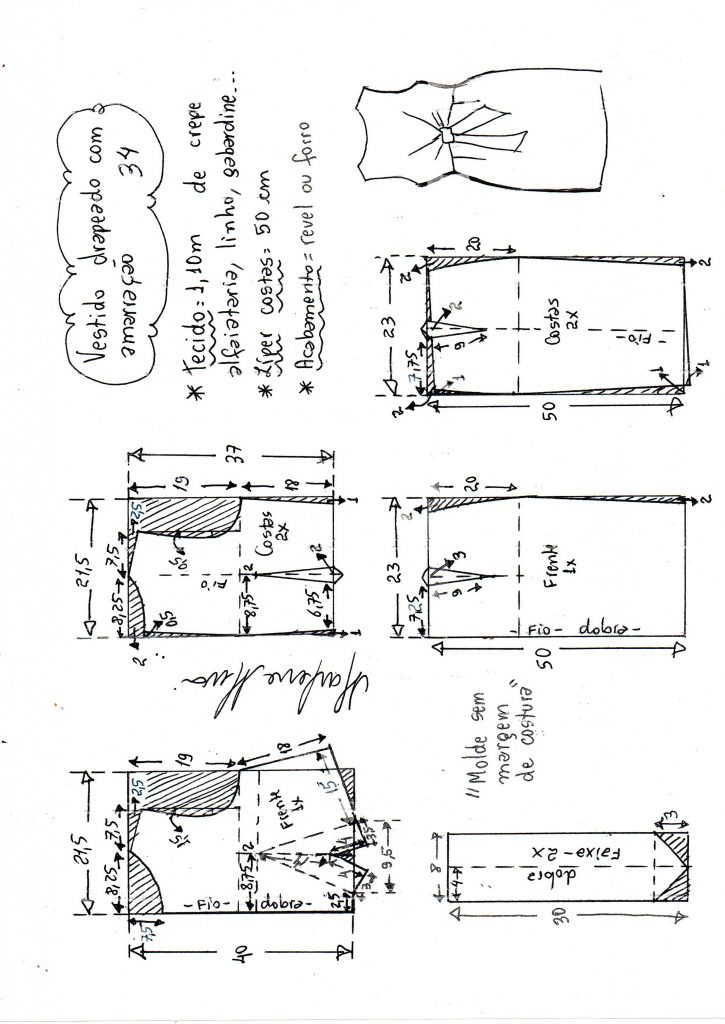 Vestido drapeado com
amarração 34
* Tecido = 1,10m de crepe
alfaiataria, linho, gabardine...
* Zíper costas = 50 cm
* Acabamento = revel ou forro
21,5
8,25
7,5
2,5
7,5
1,5
19
18
40
8,75
2
Frente
1x
- Fio - dobra -
2,5
9,5
15
21,5
8,25
7,5
2,5
2
0,5
0,5
19
18
37
Fio
8,75
2
Costas
2x
6,75
2
1
1
Marlene Mukai
23
7,25
9
3
2
20
Frente
1x
- Fio - dobra -
50
2
23
7,75
9
2
2
2
1
20
Costas
2x
- Fio -
50
1
1
2
"Molde sem
margem
de costura"
8
4
dobra
Faixa - 2x
30
3